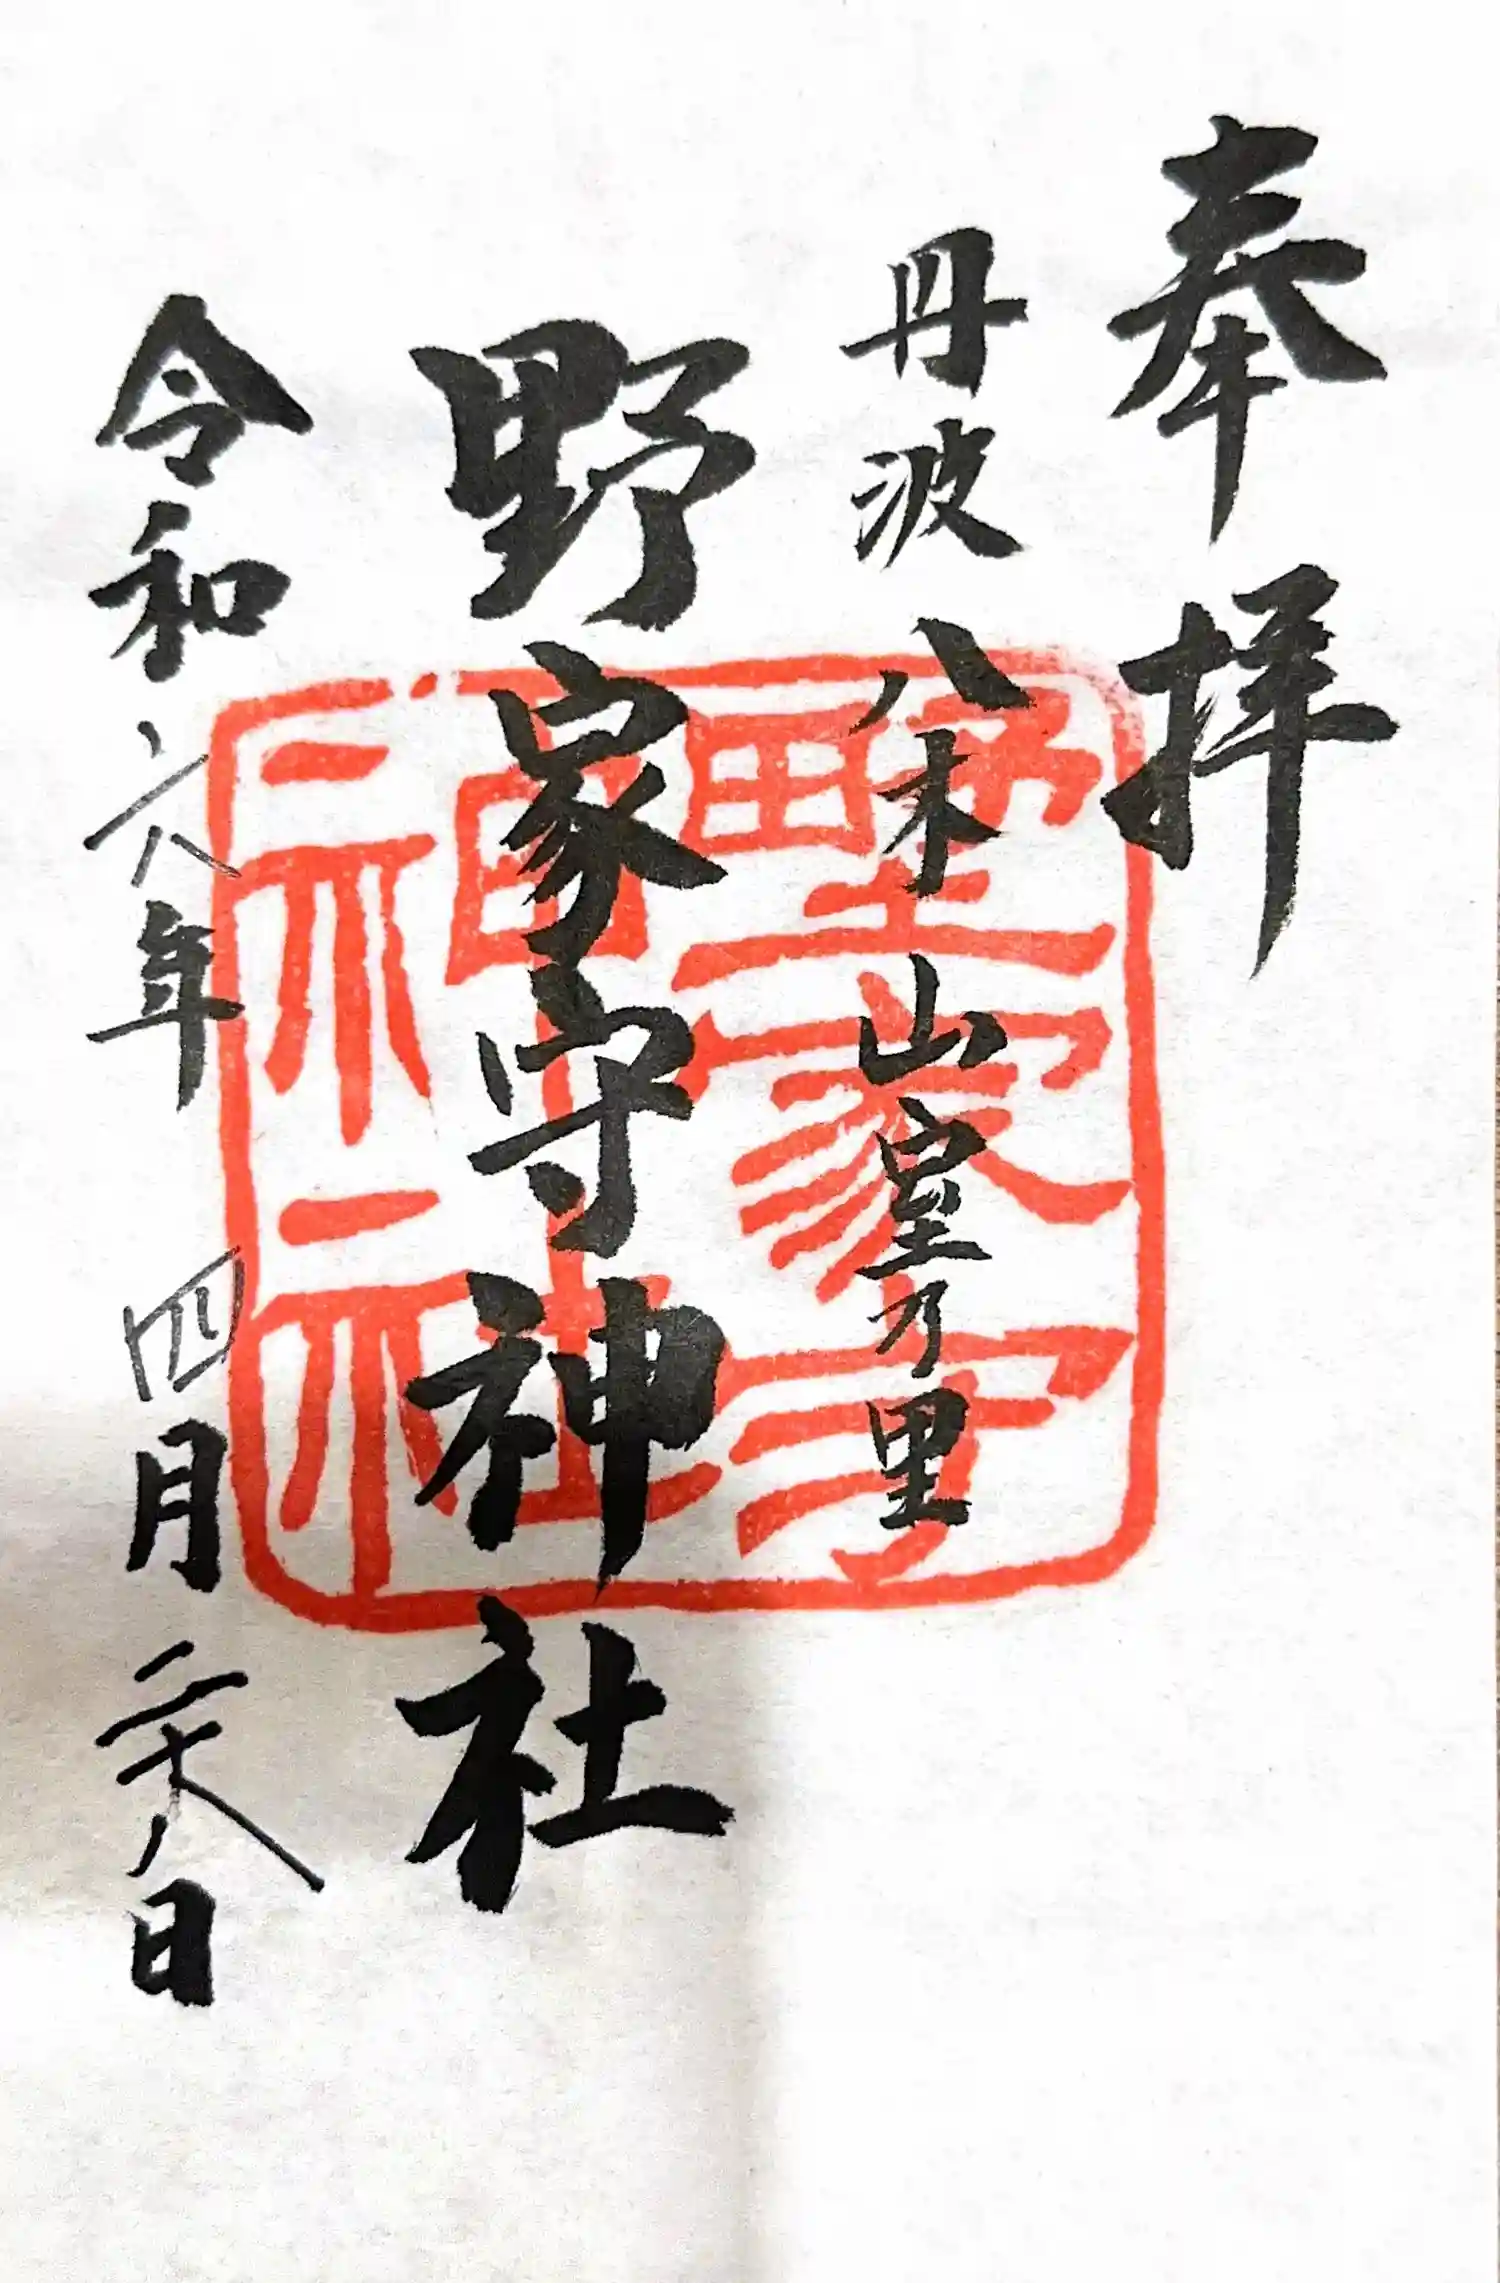 奉拝
丹波八木山室乃里
野家守神社
令和六年四月二十八日
野家守
神社